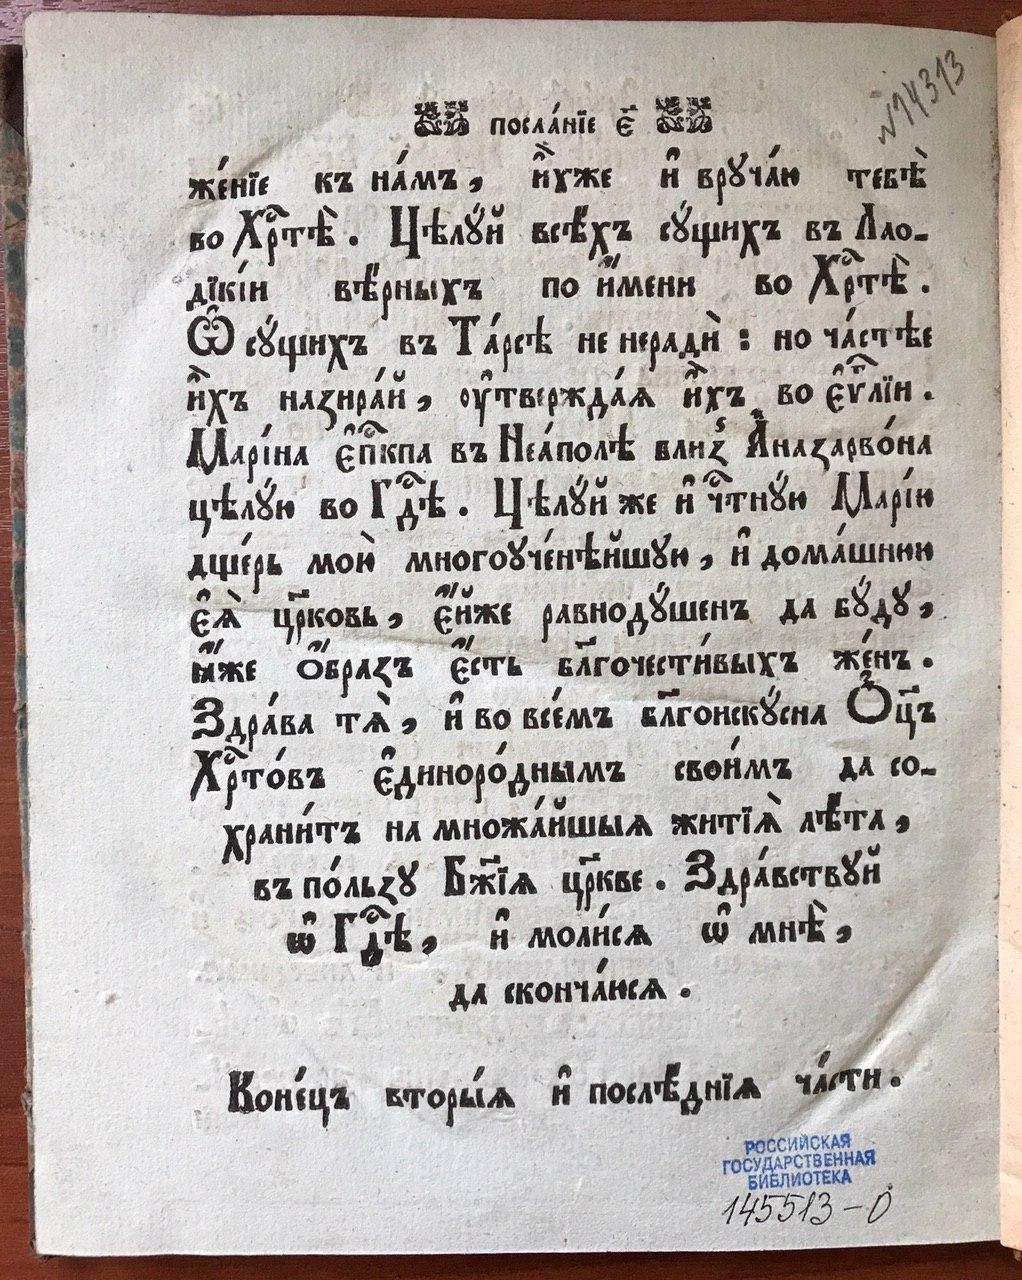 № 14313
посла́нїе є҃
же́нїе къ на́мъ, и҆̀хже и҆ врꙋча́ю тебѣ̀
во Хрⷭ҇тѣ̀. Цѣлꙋ́й всѣ́хъ сꙋ́щихъ въ Лао-
дїкі́и вѣ́рныхъ по и҆́мени во Хрⷭ҇тѣ̀.
Ѿ сꙋ́щихъ въ Та́рсѣ не неради̇̀: но ча́стѣе
и҆̀хъ назира́й, ᲂу҆твержда́ѧ и҆̀хъ во є҆ѵⷢ҇лїи.
Марі́на є҆пⷭ҇кпа въ Неа́полѣ влиз̾ А҆назарво́на
цѣлꙋ́ю во Гдⷭ҇ѣ. Цѣлꙋ́й же и҆ чⷭ҇тнꙋ́ю Марі́ю
дще́рь мою̀ многоꙋче́нѣйшꙋю, и҆ дома́шнюю
є҆ѧ̀ цр҃ковь, є҆́йже равнодꙋ́шенъ да бꙋ́дꙋ,
ꙗ҆́же ѻ҆́бразъ є҆́сть бл҃гочести́выхъ же́нъ.
Здра́ва тѧ̀, и҆ во все́мъ бл҃гоискꙋ́сна Ѻ҆ц҃ъ
Хрⷭ҇то́въ є҆диноро́днымъ свои́мъ да со-
храни́тъ на мно́жайшыѧ житїѧ̀ лѣ́та,
въ по́льзꙋ Бж҃їѧ цр҃кве. Здра́вствꙋй
ѡ҆ Гдⷭ҇ѣ, и҆ моли́сѧ ѡ҆ мнѣ̀,
да сконча́юсѧ.
Коне́цъ вторы́ѧ и҆ послѣ́днїѧ ча́сти.
РОССИЙСКАЯ
ГОСУДАРСТВЕННАЯ
БИБЛИОТЕКА
145513-0